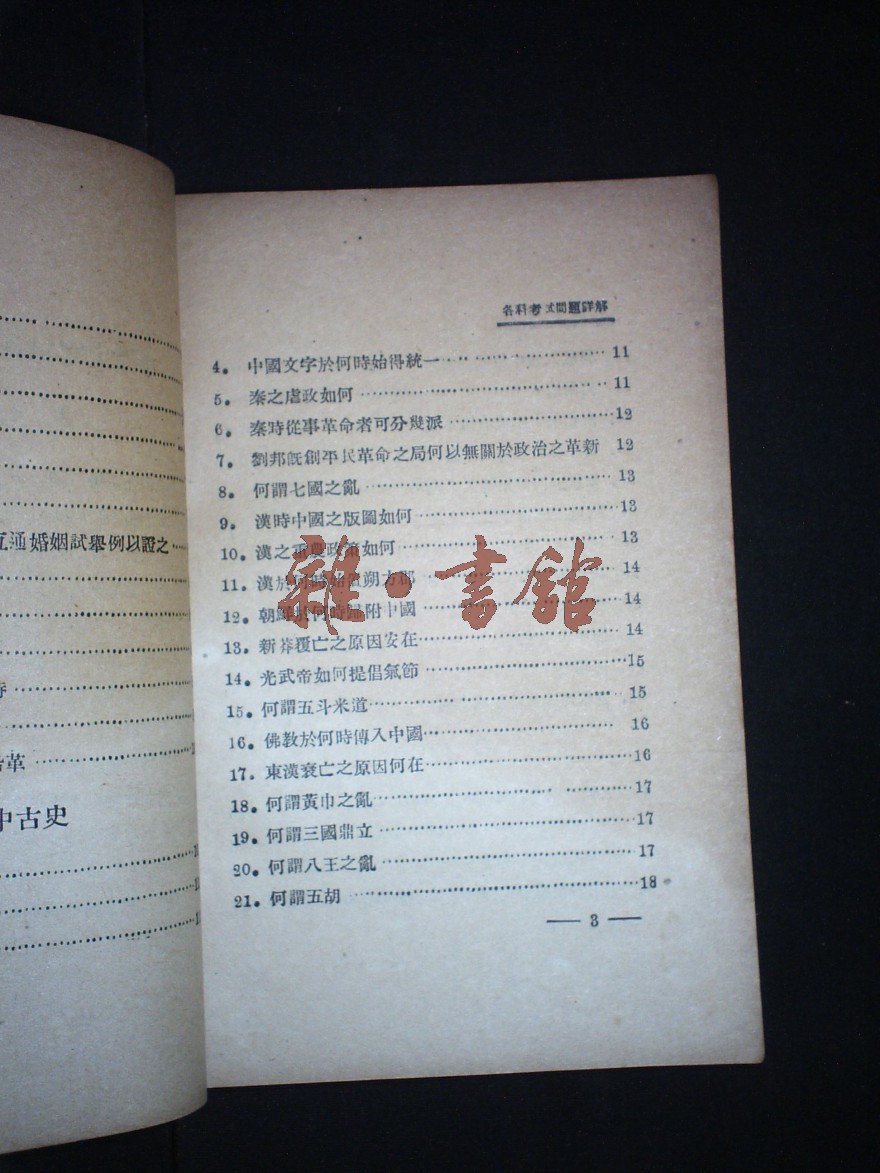 互通婚姻試舉例以證之
革
中古史
各科考試問題詳解
4. 中國文字於何時始得統一 11
5. 秦之虐政如何 11
6. 秦時從事革命者可分幾派 12
7. 劉邦旣創平民革命之局何以無關於政治之革新 12
8. 何謂七國之亂 13
9. 漢時中國之版圖如何 13
10. 漢之重農政策如何 13
11. 漢於何時始置朔方郡 14
12. 朝鮮於何時歸附中國 14
13. 新莽覆亡之原因安在 14
14. 光武帝如何提倡氣節 15
15. 何謂五斗米道 15
16. 佛教於何時傳入中國 16
17. 東漢衰亡之原因何在 16
18. 何謂黃巾之亂 17
19. 何謂三國鼎立 17
20. 何謂八王之亂 17
21. 何謂五胡 18
— 3 —
雜·書館